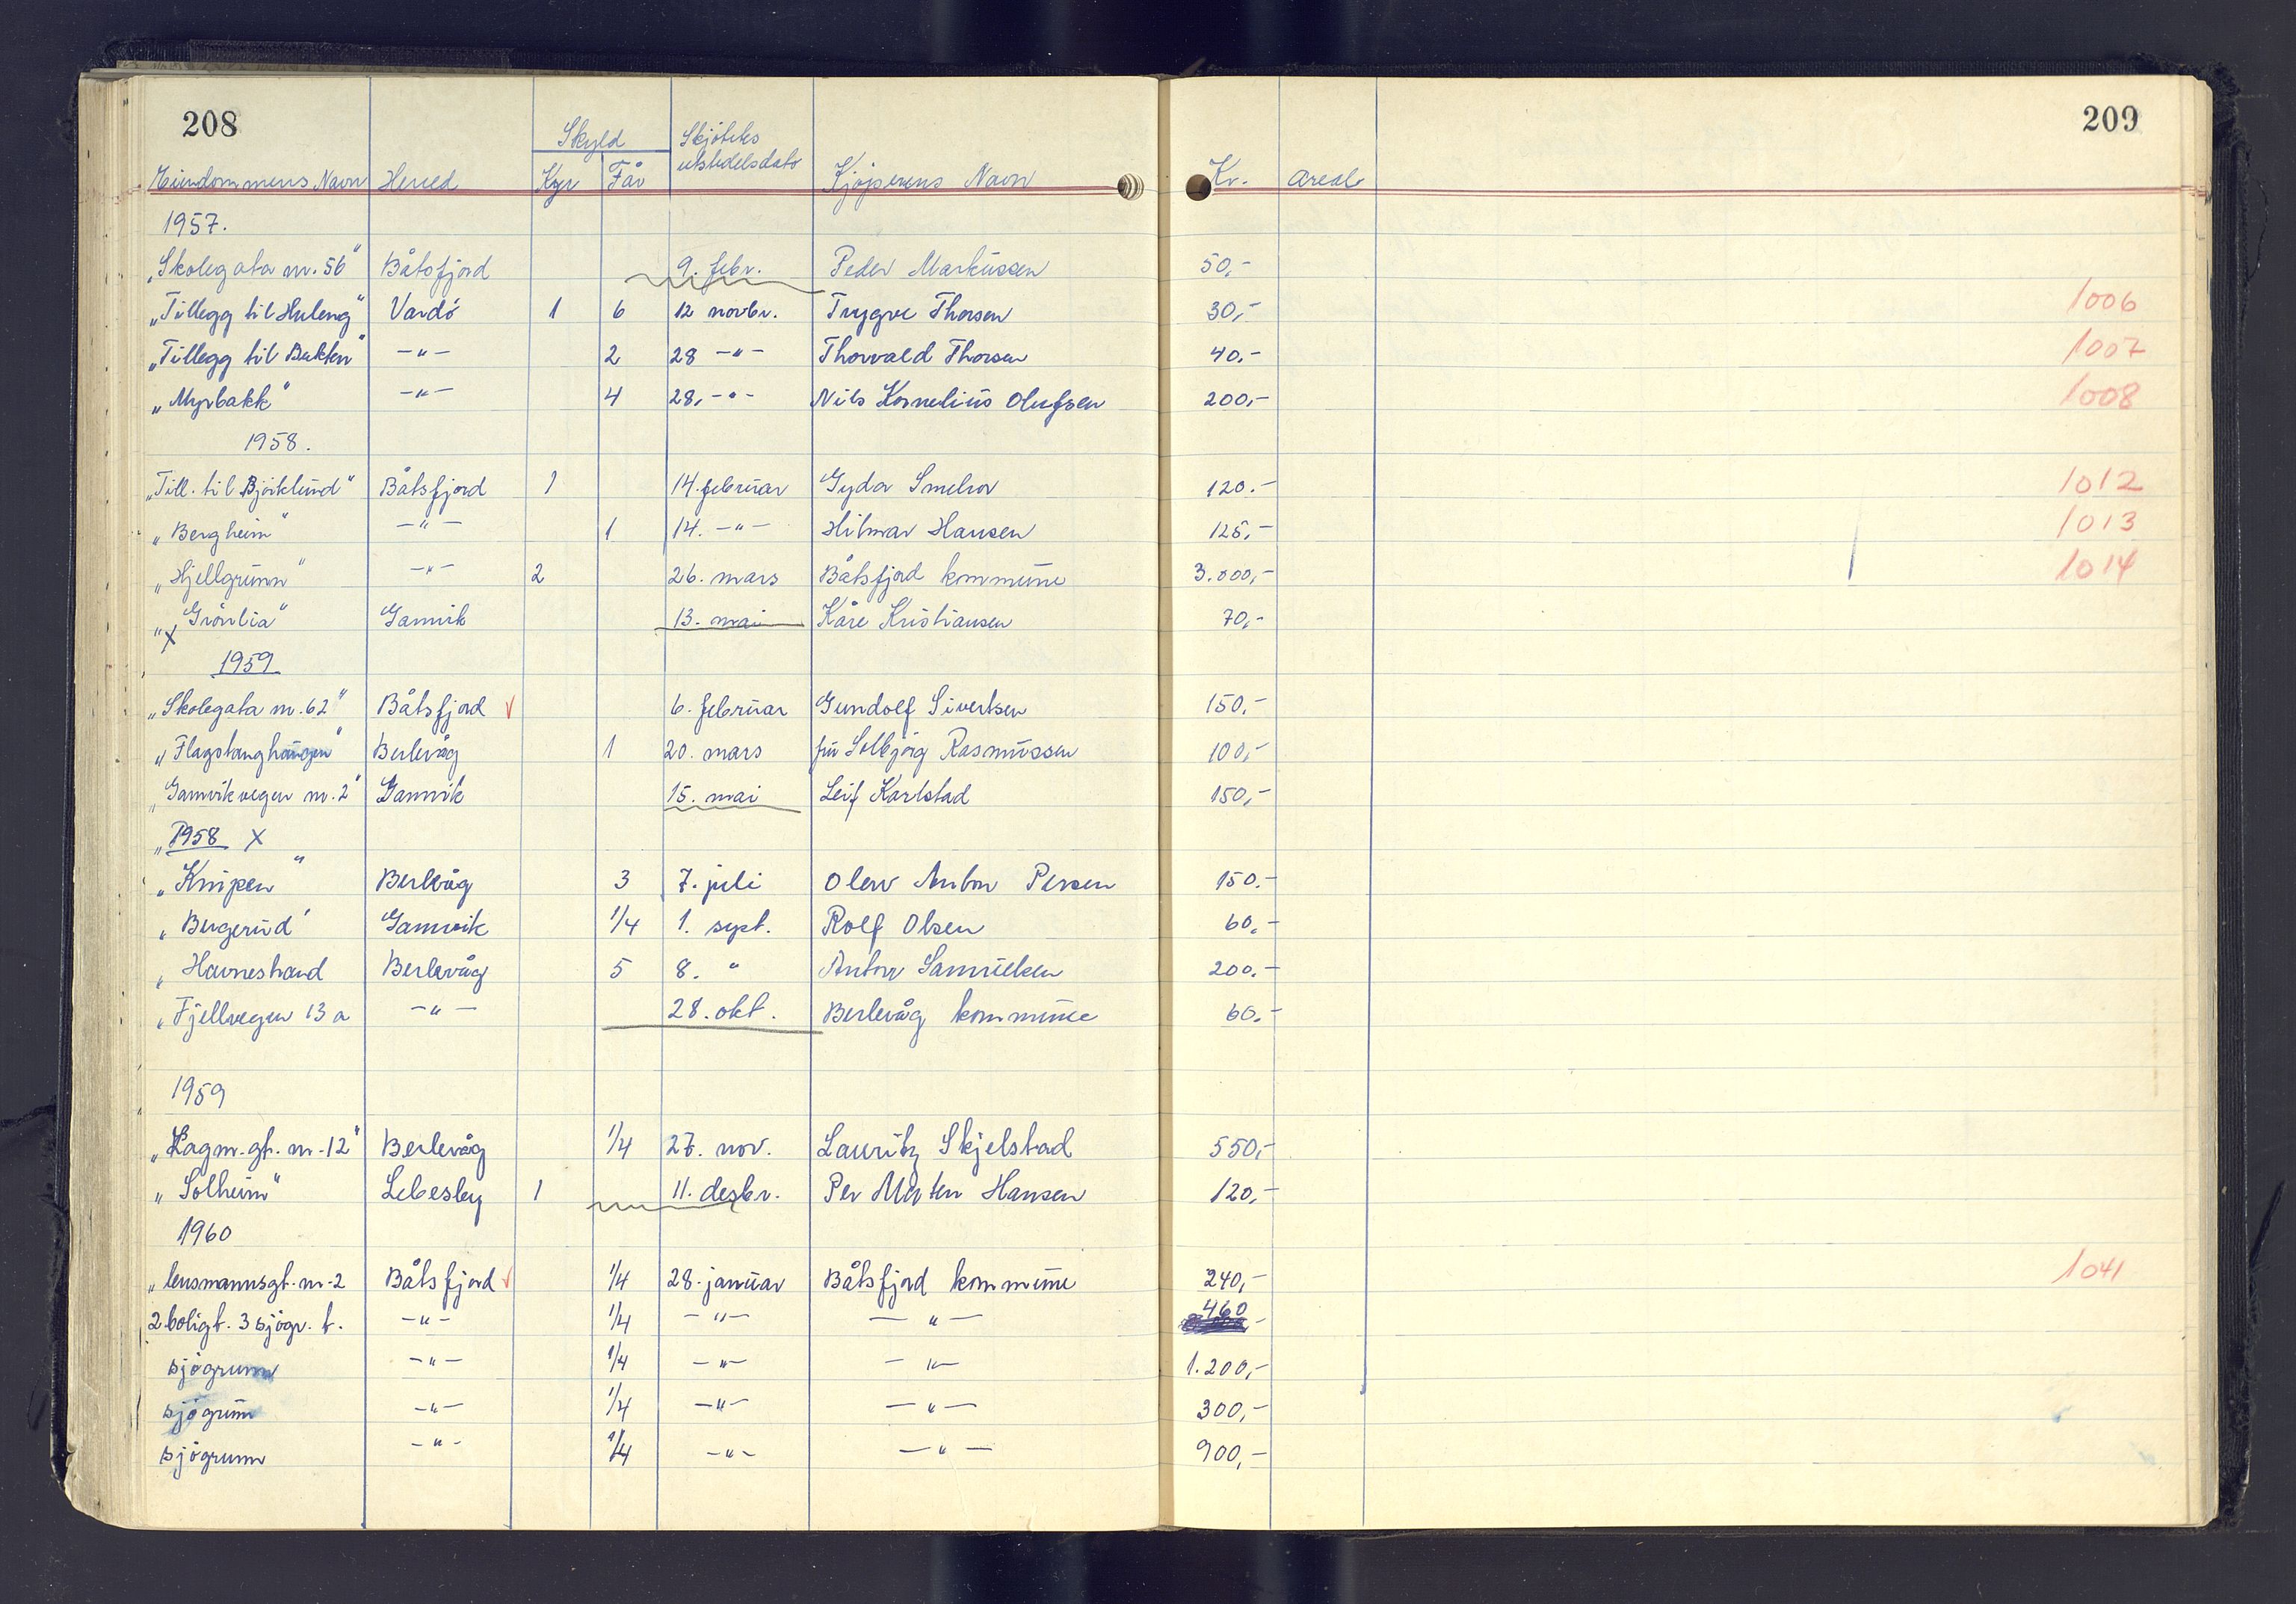 208
209
Skyld
Skjötets
utstedelsesdato
Eiendommens Navn Herred Kyr Får Kjøperens Navn Kr. Areal
1957.
„Skolegata nr. 56" Båtsfjord 9. febr. Peder Markussen 50,-
„Tillegg til Huleng" Vardö 1 6 12 novbr. Trygve Thorsen 30,- 1006
„Tillegg til Bakken" -"- 2 28 -"- Thorvald Thorsen 40.- 1007
„Myrbakk" -"- 4 28. -"- Nils Kornelius Olufsen 200,- 1008
1958.
„Till. til Björklund" Båtsfjord 1 14. februar Gyda Smelror 120.- 1012
„Bergheim" -"- 1 14. -"- Hilmar Hansen 125,- 1013
„Hjellgrunn" -"- 2 26. mars Båtsfjord kommune 3.000,- 1014
„Grönlia" Gamvik 13. mai Kåre Kristiansen 70,-
x
1959
„Skolegata nr. 62" Båtsfjord √ 6. februar Gundolf Sivertsen 150.-
„Flagstanghaugen" Berlevåg 1 20. mars fru Solbjörg Rasmussen 100,-
„Gamvikvegen nr. 2" Gamvik 15. mai Leif Karlstad 150,-
„1958 x
„Knipen" Berlevåg 3 7. juli Olav Anton Persen 150.-
„Bergerud' Gamvik 1/4 1. sept. Rolf Olsen 60.-
„Havnestrand Berlevåg 5 8. " Anton Samuelsen 200.-
„Fjellvegen 13 a -"- 28. okt. Berlevåg kommune 60.-
1959
„Kagm. gt. nr. 12" Berlevåg 1/4 27. nov. Lauritz Skjelstad 550,-
„Solheim" Lebesby 1 11. desbr. Per Morten Hansen 120,-
1960
„lensmannsgt. nr. 2 Båtsfjord √ 1/4 28. januar Båtsfjord kommune 240,- 1041
2 boligt. 3 sjögr. t. -"- 1/4 -"- -"- 460 -
sjögrunn -"- 1/4 -"- -"- 1.200,-
sjögrunn -"- 1/4 -"- -"- 300,-
sjögrunn -"- 1/4 -"- -"- 900,-